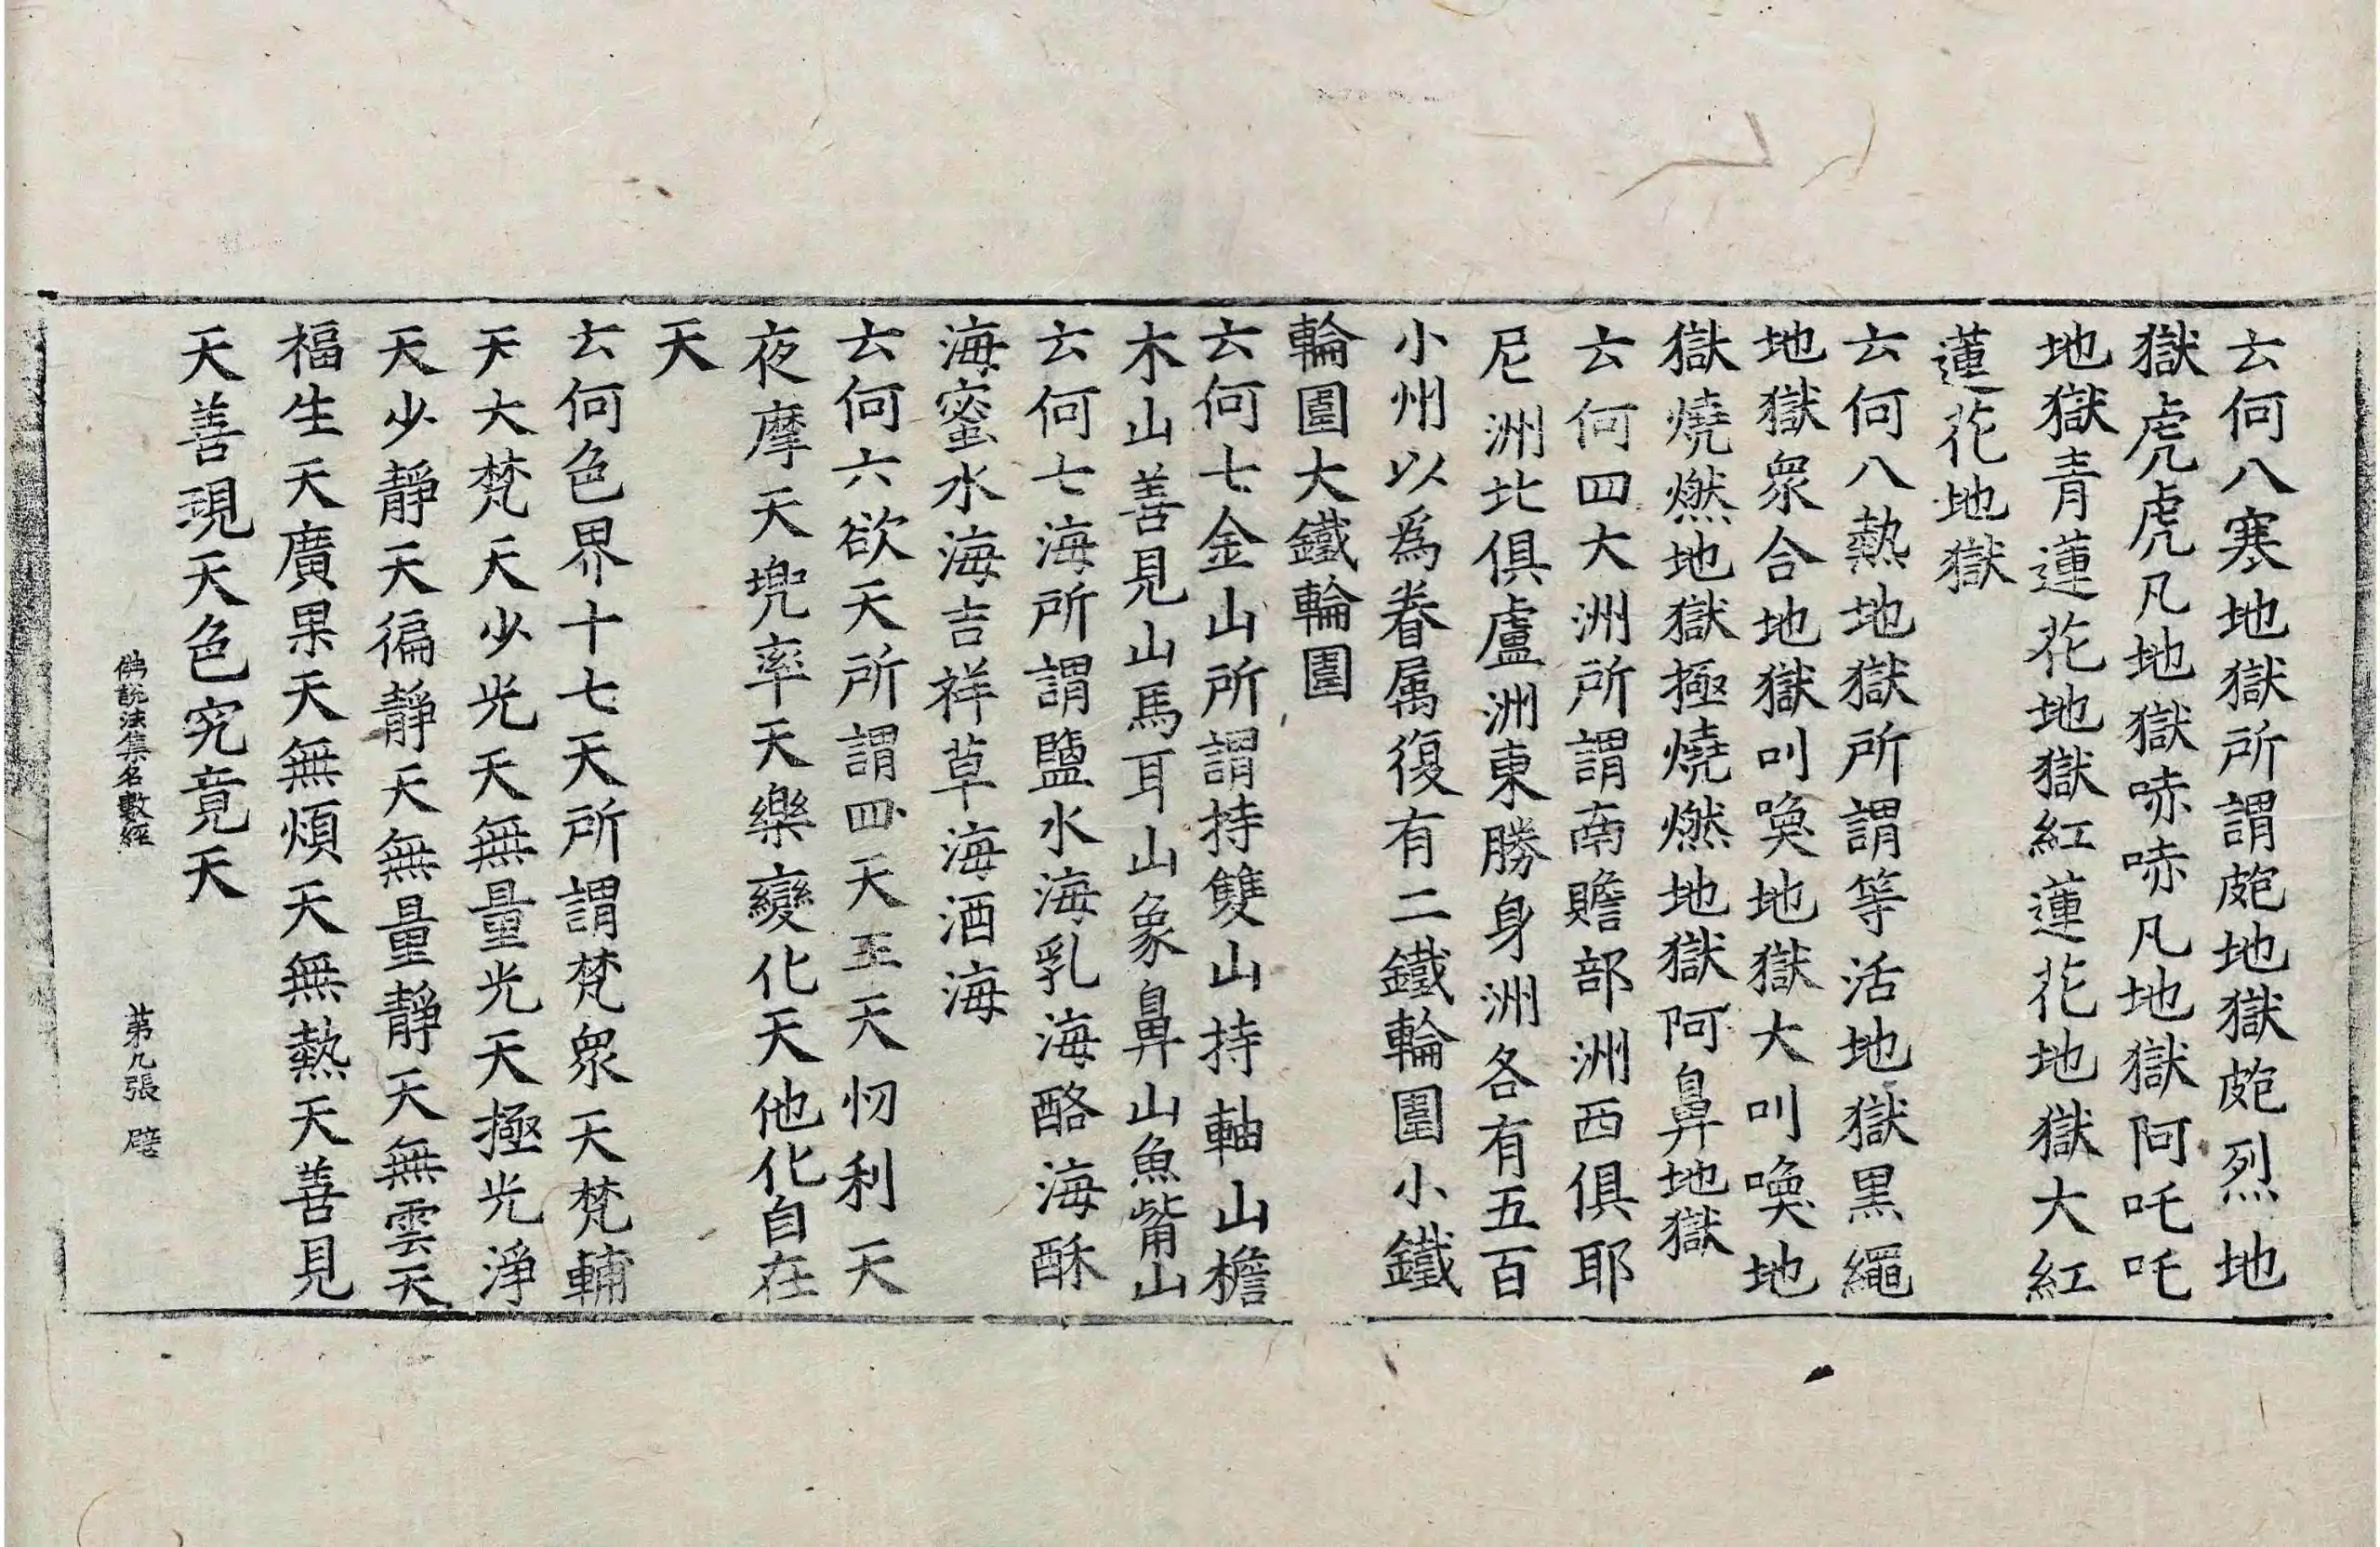 云何八寒地獄所謂皰地獄皰烈地
獄虎虎凡地獄㖿㖿凡地獄阿吒吒
地獄青蓮花地獄紅蓮花地獄大紅
蓮花地獄
云何八熱地獄所謂等活地獄黑繩
地獄衆合地獄叫喚地獄大叫喚地
獄燒燃地獄極燒燃地獄阿鼻地獄
云何四大洲所謂南贍部洲西俱耶
尼洲北俱盧洲東勝身洲各有五百
小州以爲眷属復有二鐵輪圍小鐵
輪圍大鐵輪圍
云何七金山所謂持雙山持軸山檐
木山善見山馬耳山象鼻山魚觜山
云何七海所謂鹽水海乳海酪海酥
海蜜水海吉祥草海酒海
云何六欲天所謂四天王天忉利天
夜摩天兜率天樂變化天他化自在
天
云何色界十七天所謂梵衆天梵輔
天大梵天少光天無量光天極光淨
天少靜天徧靜天無量靜天無雲天
福生天廣果天無煩天無熱天善見
天善現天色究竟天
佛說法集名數經 第九張